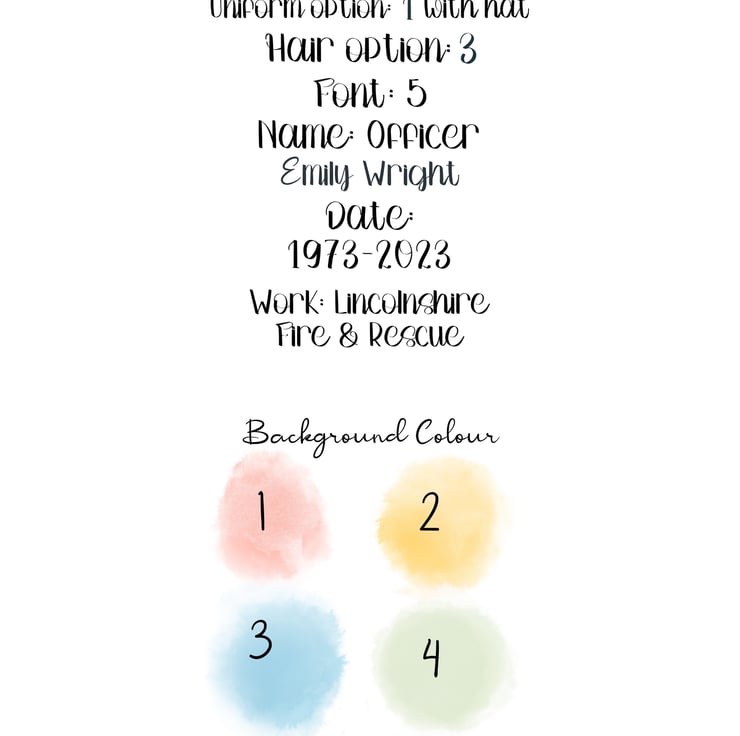 Uniform option: 1 with hat
Hair option: 3
Font: 5
Name: Officer
Emily Wright
Date:
1973-2023
Work: Lincolnshire
Fire & Rescue
Background Colour
1 2
3 4